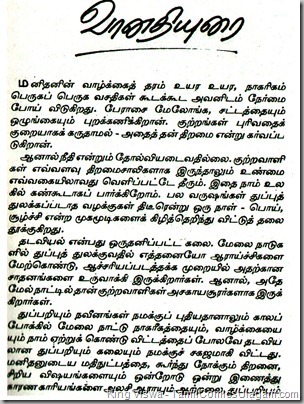 வானதியுரை
மனிதனின் வாழ்க்கைத் தரம் உயர உயர, நாகரிகம்
பெருகப் பெருக வசதிகள் கூடக்கூட அவனிடம் நேர்மை
போய் விடுகிறது. பேராசை மேலோங்க, சட்டத்தையும்
ஒழுங்கையும் புறக்கணிக்கிறான். குற்றங்கள் புரிவதைக்
குறையாகக் கருதாமல் - அதைத் தன் திறமை என்று கர்வப்ப
டுகிறான்.
ஆனால் நீதி என்றும் தோல்வியடைவதில்லை. குற்றவாளி
கள் எவ்வளவு திறமைசாலிகளாக இருந்தாலும் உண்மை
எவ்வகையிலாவது வெளிப்பட்டே தீரும். இதை நாம் உல
கில் கண்கூடாகப் பார்க்கிறோம். பல வருஷங்கள் துப்புத்
துலக்கப்படாத வழக்குகள் திடீரென்று ஒரு நாள் - பொய்,
சூழ்ச்சி என்ற முகமூடிகளைக் கிழித்தெறிந்து விட்டுத் தலை
தூக்குகிறது.
தடவியல் என்பது ஒருதனிப்பட்ட கலை. மேலை நாடுக
ளில் துப்புத் துலக்குவதில் எத்தனையோ ஆராய்ச்சிகளை
மேற்கொண்டு, ஆச்சரியப்படத்தக்க முறையில் அதற்கான
சாதனங்களை உருவாக்கி இருக்கிறார்கள். ஆனால், அதே
மேல்நாட்டில்தான் குற்றவாளிகள் அசகாயசூரர்களாக இருக்
கிறார்கள்.
துப்பறியும் நவீனங்கள் நமக்குப் புதியதானாலும் காலப்
போக்கில் மேலை நாட்டு நாகரீகத்தையும், வாழ்க்கையை
யும் நாம் ஏற்றுக் கொண்டு விட்டதைப் போலவே தடவிய
லான துப்பறியும் கலையும் நமக்குச் சகஜமாகி விட்டது.
மனிதனுடைய மதிநுட்பத்தை, கூர்ந்து நோக்கும் திறனை,
சிறிய விஷயங்களையும் ஒன்றோடு ஒன்று இணைத்து
காரண காரியங்களை அலசி ஆராயும் ஆற்றலை, துப்பறியும்